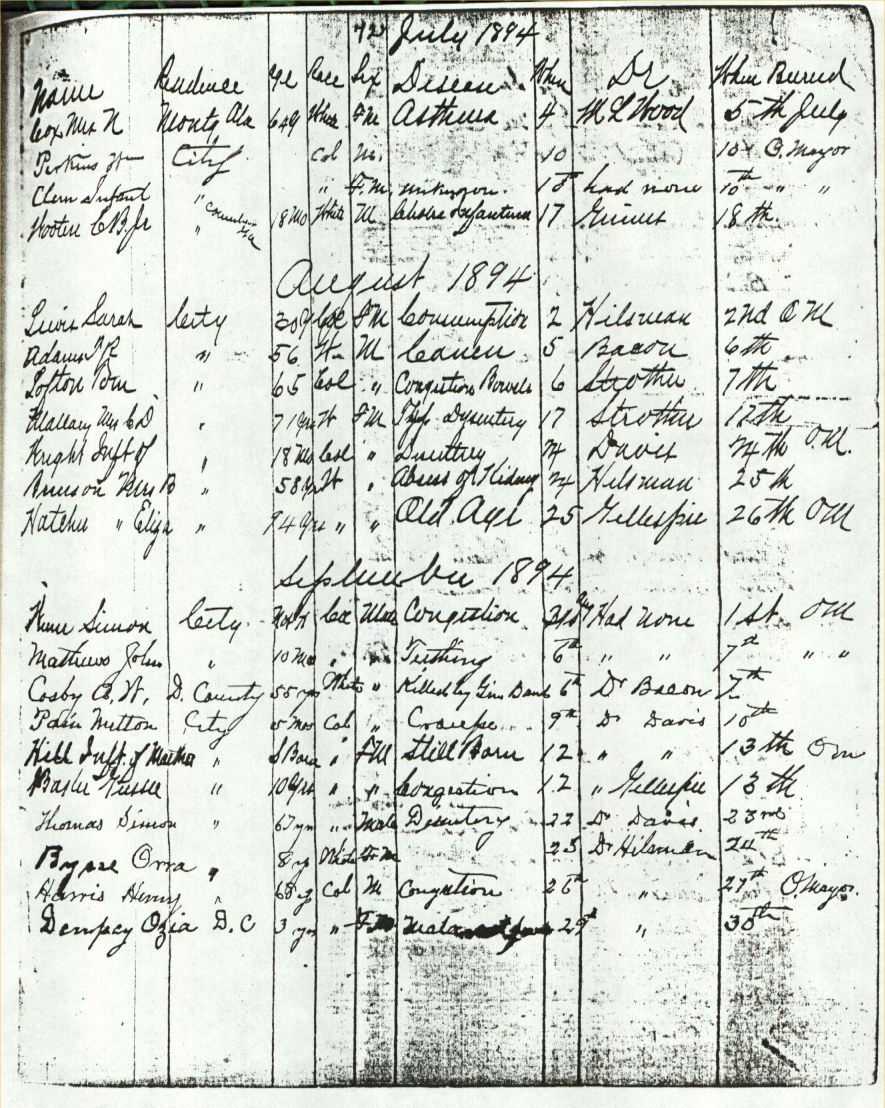 72 July 1894
Name Residence Age Race Sex Disease When Dr When Buried
Cox Mrs N Montg Ala 64y White FM Asthma 4 M L Wood 5th July
Perkins Wm City Col M. 10 10 O. Mayor
Clem Infant " " F.M. unknown. 18 had none 10th " "
Wooten C B. Jr " Columbus Ga 18 Mo White M Cholera Infantum 17 Grimes 18th.
August 1894
Lewis Sarah City 30y Col FM Consumption 2 Hilsman 2nd O M
Adams " 56 W M Cancer 5 Bacon 6th
Lofton Tom " 65 Col " Congestion Bowels 6 Strother 7th
Mallary Mrs C D " 71 yrs W FM Typ. Dysentery 17 Strother 17th
Knight Inft of " 18 Mo Col " Dysentery 24 Davis 24th O.M.
Brunson Mrs B " 58 yr W " Abscess of Kidney 24 Hilsman 25th
Hatcher " Eliza " 94 yrs " " Old Age 25 Gillespie 26th OM
September 1894
Simon City Col Male Congestion Had None 1st OM
Mathews John " 10 Mo " " Teething 6th " " 7th " "
Cosby C. W. D. County 55 yrs White " Killed by Gin Band 6th Dr Bacon 7th
Pain Mitton City 5 Mos Col " Croup 9th Dr Davis 10th
Hill Inft. of Martha " S Born " FM Still Born 12 " " 13th Om
Gussie " 10 yrs " " Congestion 12 " Gillespie 13th
Thomas Simon " 67 yrs " Male Desentery 22 Dr Davis 23rd
Bysse Orra " 8 yr White F. M 23 Dr Hilsman 24th
Harris Henry " 68 yr Col M Congestion 26th " 27th O. Mayor.
Dempsey Ozia D. C 3 yrs " F.M 29th " 30th